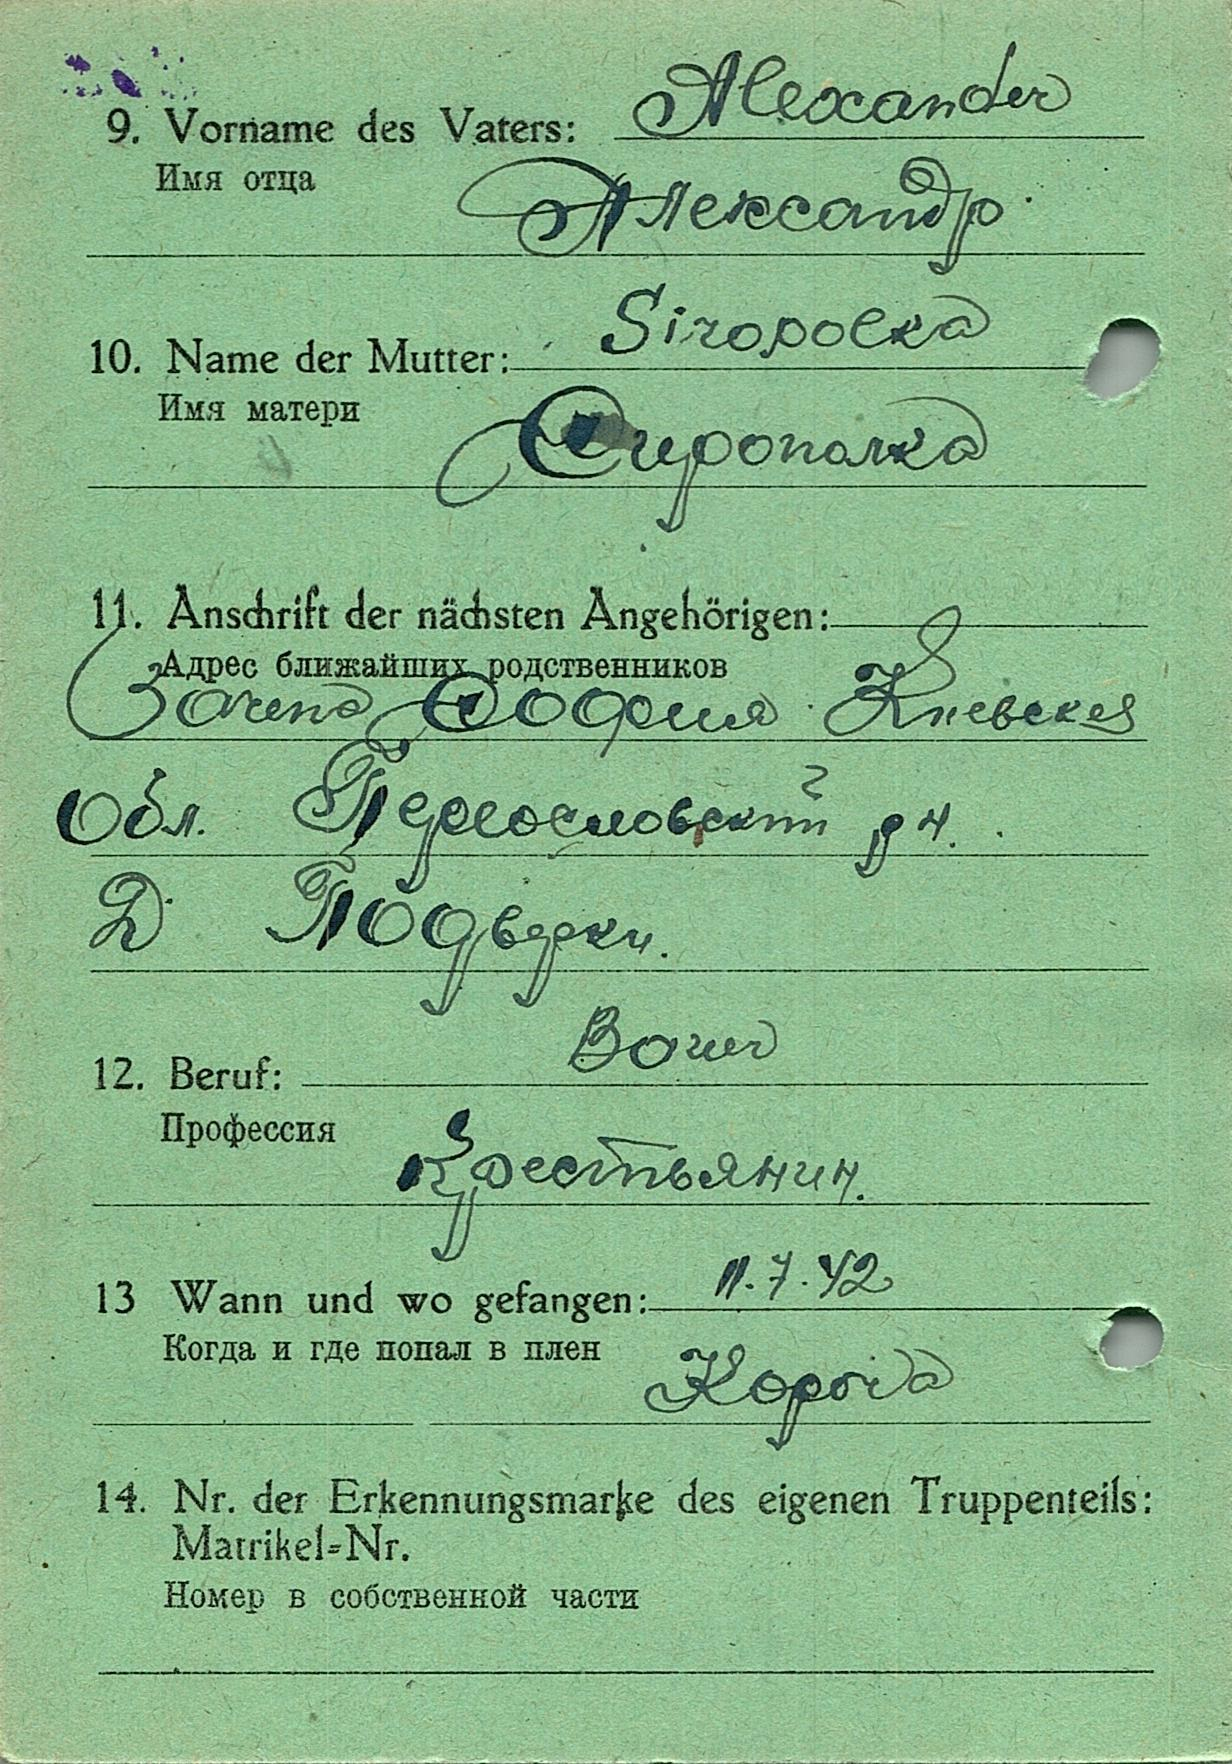 9. Vorname des Vaters: Alexander
Имя отца
Александр
10. Name der Mutter: Siropolka
Имя матери
Сирополка
11. Anschrift der nächsten Angehörigen:
Адрес ближайших родственников
София Киевская
Обл. р н.
Д
12. Beruf: Bauer
Профессия
Крестьянин.
13 Wann und wo gefangen: 11.7.42
Когда и где попал в плен
Короча
14. Nr. der Erkennungsmarke des eigenen Truppenteils:
Matrikel=Nr.
Номер в собственной части